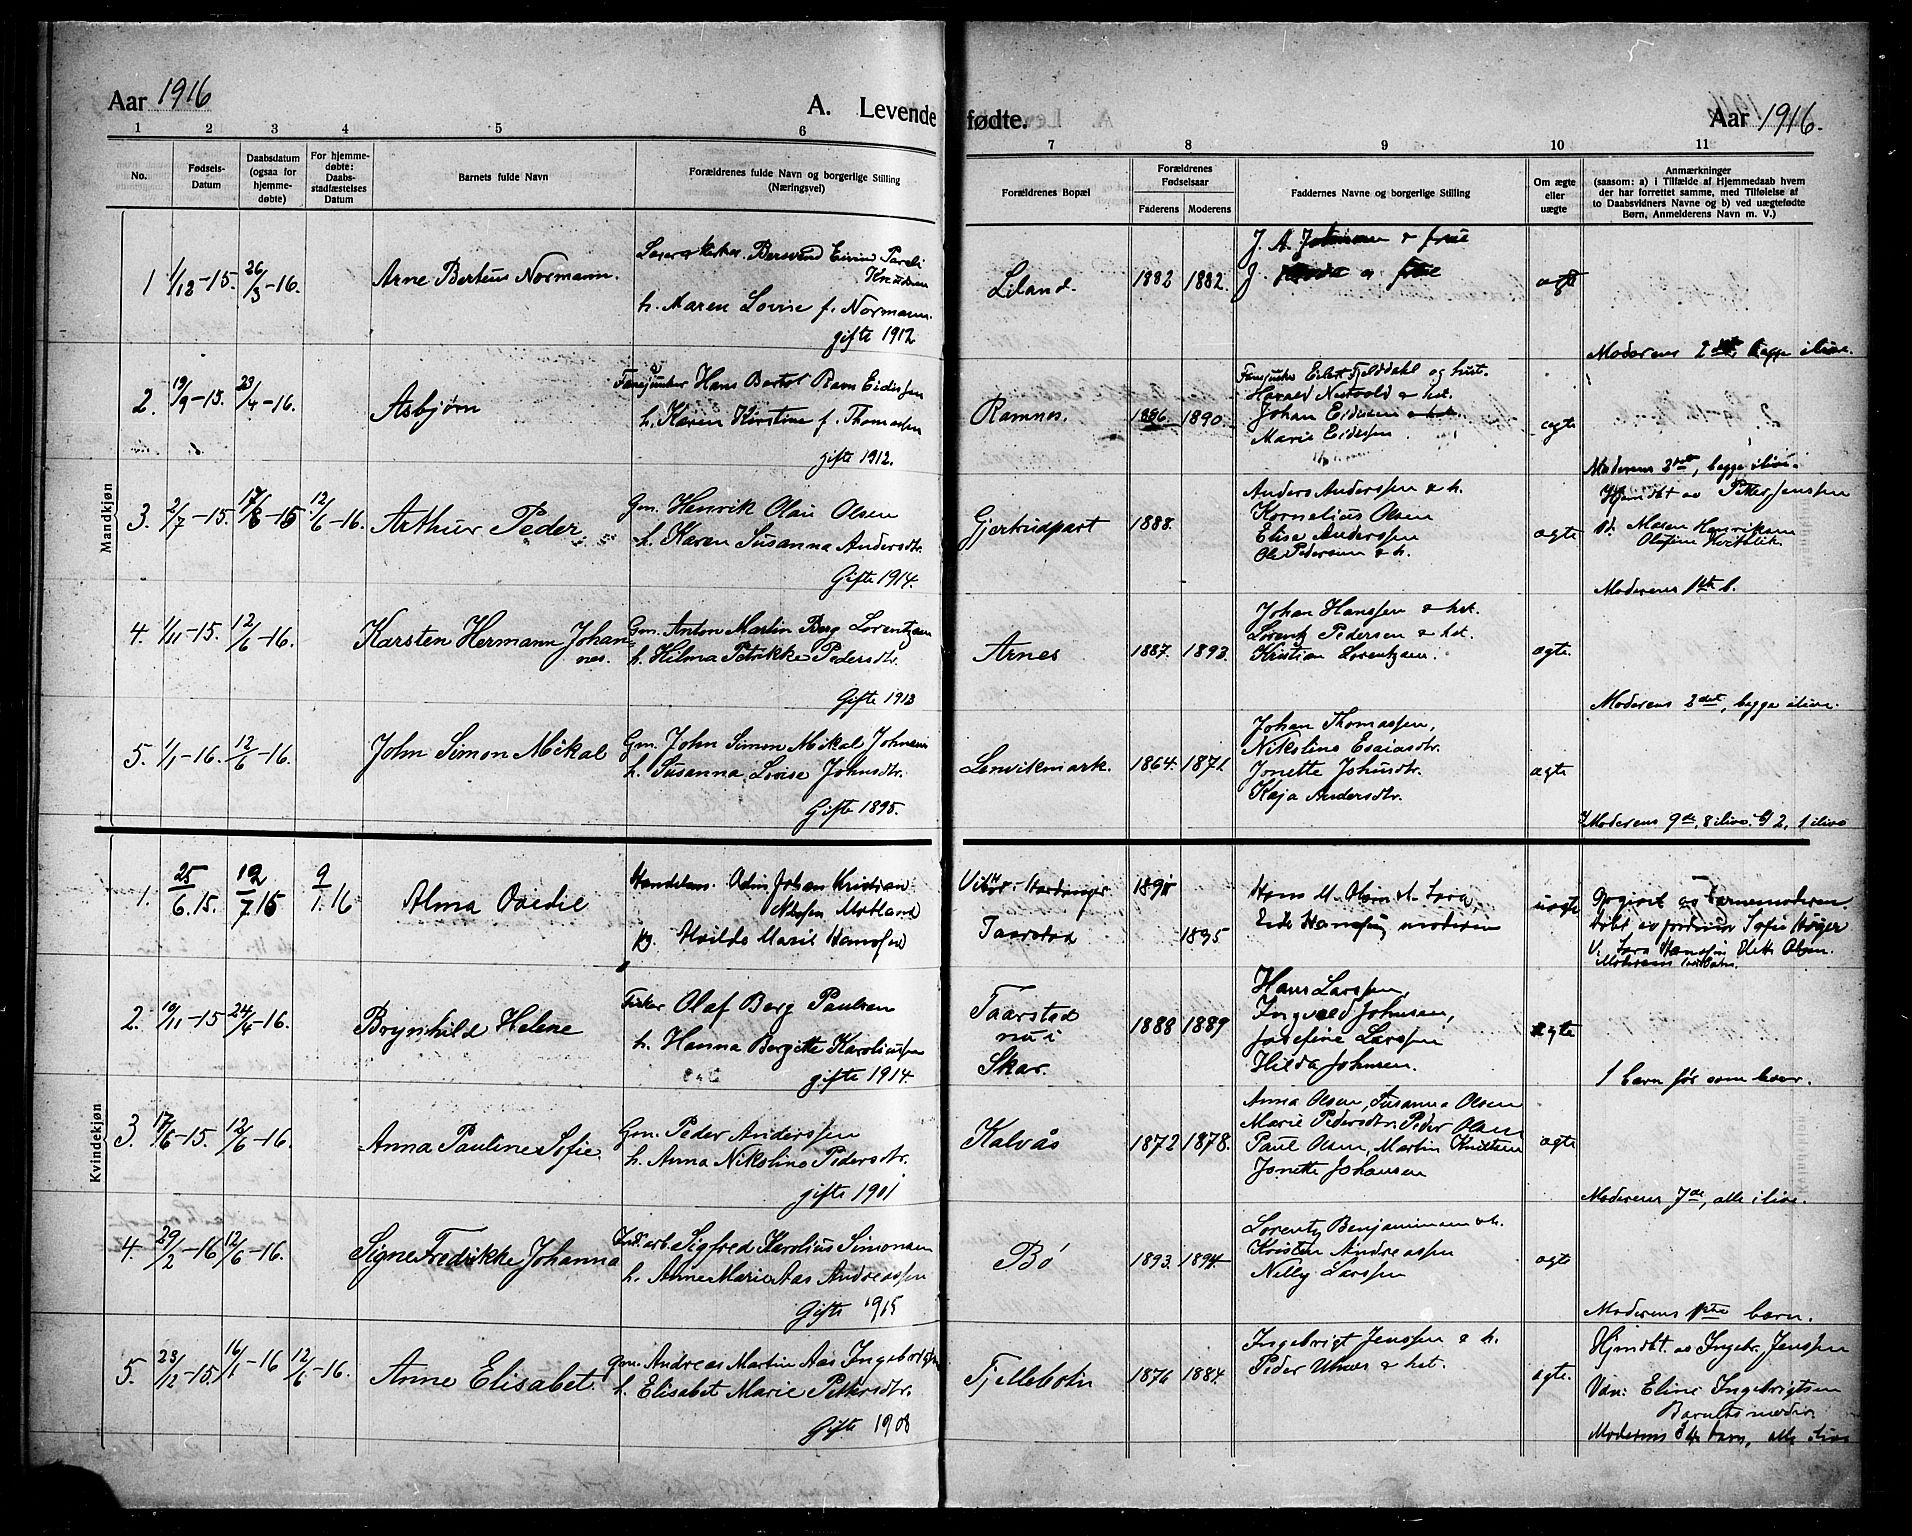 Aar 1916
A. Levende
fødte.
Aar 1916.
1 2 3 4 5 6
7 8 9 10 11
No.
Fødsels-
Datum
Daabsdatum
(ogsaa for
hjemme-
døbte)
For hjemme-
døbte:
Daabs-
stadfæstelses
Datum
Barnets fulde Navn
Forældrenes fulde Navn og borgerlige Stilling
(Næringsvei)
Forældrenes Bopæl
Forældrenes
Fødselsaar
Faderens
Moderens
Faddernes Navne og borgerlige Stilling
Om ægte
eller
uægte
Anmærkninger
(saasom: a) i Tilfælde af Hjemmedaab hvem
der har forrettet samme, med Tilføielse af
to Daabsvidners Navne og b) ved uægtefødte
Børn, Anmelderens Navn m. V.)
Mandkjøn
1 1/12-15. 26/3-16. Arne Berteus Normann.
h. Maren Lovise f. Normann.
gifte 1912
Liland. 1882 1882.
J. A.
ægte
Moderens
2. 19/9-15. 23/4-16. Asbjørn
Hans Bertol Ravn Eidissen
h. Karen Kirstine f. Thomassen
gifte 1912.
Ramnes. 1886. 1890.
Harald
Johan Eidissen
Marie Eidissen
ægte
Moderens 2det, begge ilive.
3. 2/7-15. 17/8-15 12/6-16. Arthur Peder
Gm. Henrik Olai Olsen
h. Karen Susanna Andersdtr.
Gifte 1914.
Gjertrudpart 1888.
Anders Anderssen & h.
Kornelius Olsen
Elise Anderssen
Ole Pedersen & h.
ægte
Hjemdbt av Petter Jenssen
Maren Henriksen
Olufine
Moderens 1ste b.
4. 1/11-15. 12/6-16. Karsten Hermann Johan-
nes.
Gm. Anton Martin Berg Lorentzen
h. Hilma Petrikke Pedersdtr.
Gifte 1913
Arnes 1887. 1893.
Johan Hanssen & hst.
Lorentz Pedersen & hst.
Kristian Lorentzen.
ægte
Moderens 2det, begge ilive.
5. 1/1-16. 12/6-16. John Simon Mikal
Gm. John Simon Mikal Johnsen
h. Susanna Lovise Johnsdtr.
Gifte 1895.
Lenvikmark. 1864. 1871.
Johan Thomassen,
Nikoline Esaiasdtr.
Jonette Johnsdtr.
Kaja Andersdtr.
ægte
Moderens 9de, 8 ilive.
Kvindekjøn
1. 25/6.15. 12/7 15 9/1.16 Alma
Odin Johan Kristian
pg. Marie Hanssen
Taarstad 1895
Hans M. Olsen
moderen
uægte
Opgivet av Barnemoderen.
2. 19/11-15 24/4-16. Brynhild Helene
Fisker Olaf Berg Paulsen
h. Hanna Bergitte Karoliussen
gifte 1914.
Taarstad
nu i
Skar.
1888 1889
Hans Larssen,
Ingvald Johnsen,
Josefine Larssen
Hilda Johnsen.
ægte
1 barn før som lever.
3. 17/6-15. 12/6-16. Anna Pauline Sofie.
Gm. Peder Anderssen
h. Anna Nikoline Pedersdtr.
gifte 1901
Kalvås 1872 1878.
Anna Olsen, Susanna Olsen
Marie Pedersdtr. Peder Olsen
Paul Olsen, Martin Knutsen
Jonette Johansen
ægte
Moderens 7de, alle ilive.
4. 29/2-16 12/6-16. Signe Fredrikke Johanna
Sigfred Karolius Simonsen
h. Anne Marie Aas Andreassen
Gifte 1915
Bø 1893. 1894.
Lorentz Benjaminsen & h.
Kristen Andreassen
Nelly Larssen
ægte
Moderens 1ste barn.
5. 23/12-15. 16/1-16 12/6-16. Anne Elisabet.
Gm. Andreas Martin Aas Ingebrigtsen
h. Elisabet Marie Pettersdtr.
Gifte 1908
Fjellebotn 1876 1884.
Ingebrigt Jenssen & h.
Peder & hst.
ægte.
Hjemdbt. av Ingebr. Jenssen
Vidn: Eline Ingebrigtsen
Barnets moder
Moderens 4de barn, alle ilive